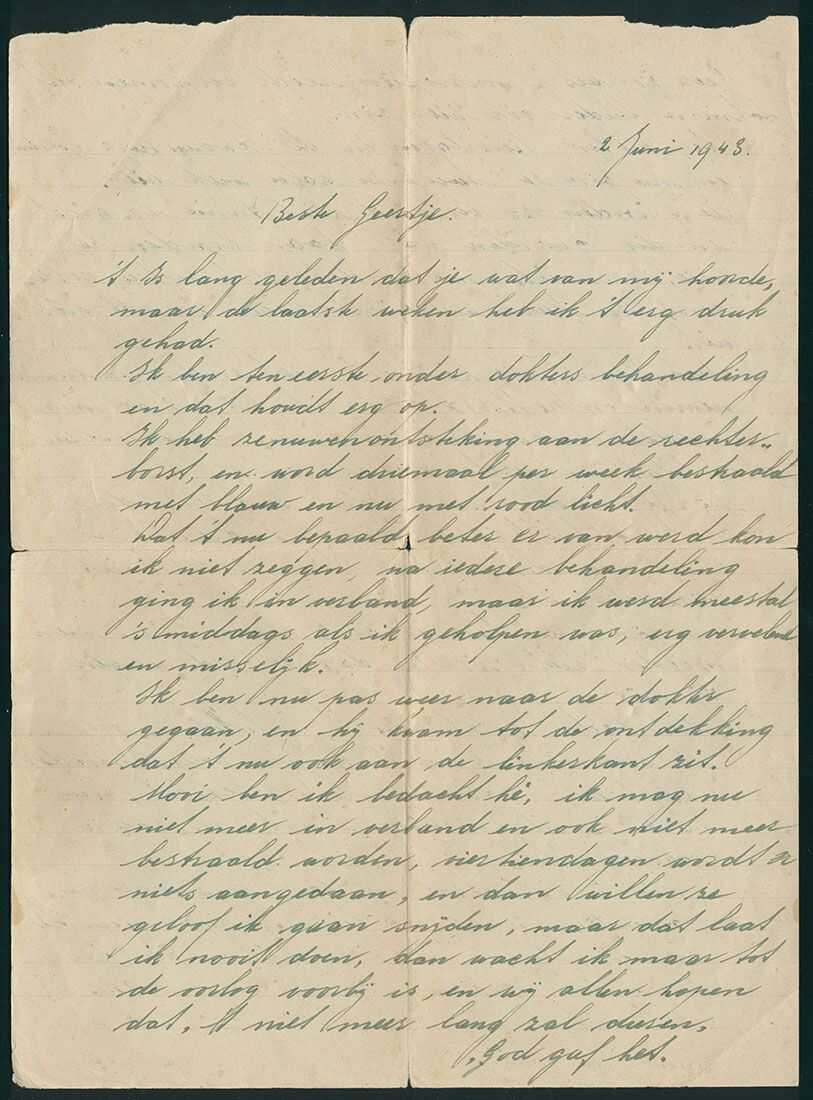 2 Juni 1943.
Beste Geertje.
't Is lang geleden dat je wat van mij hoorde,
maar de laatste weken heb ik 't erg druk
gehad.
Ik ben ten eerste onder dokters behandeling
en dat houdt erg op.
Ik heb zenuwenontsteking aan de rechter„
borst, en word driemaal per week bestraald
met blauw en nu met rood licht.
Dat 't nu bepaald beter er van werd kon
ik niet zeggen, na iedere behandeling
ging ik in verband, maar ik werd meestal
's middags als ik geholpen was, erg vervelend
en misselijk.
Ik ben nu pas weer naar de dokter
gegaan, en hij kwam tot de ontdekking
dat 't nu ook aan de linkerkant zit.
Mooi ben ik bedacht hé, ik mag nu
niet meer in verband en ook niet meer
bestraald worden, viertiendagen wordt er
niets aangedaan, en dan willen ze
geloof ik gaan snijden, maar dat laat
ik nooit doen, dan wacht ik maar tot
de oorlog voorbij is, en wij allen hopen
dat, 't niet meer lang zal duren,
God gaf het.